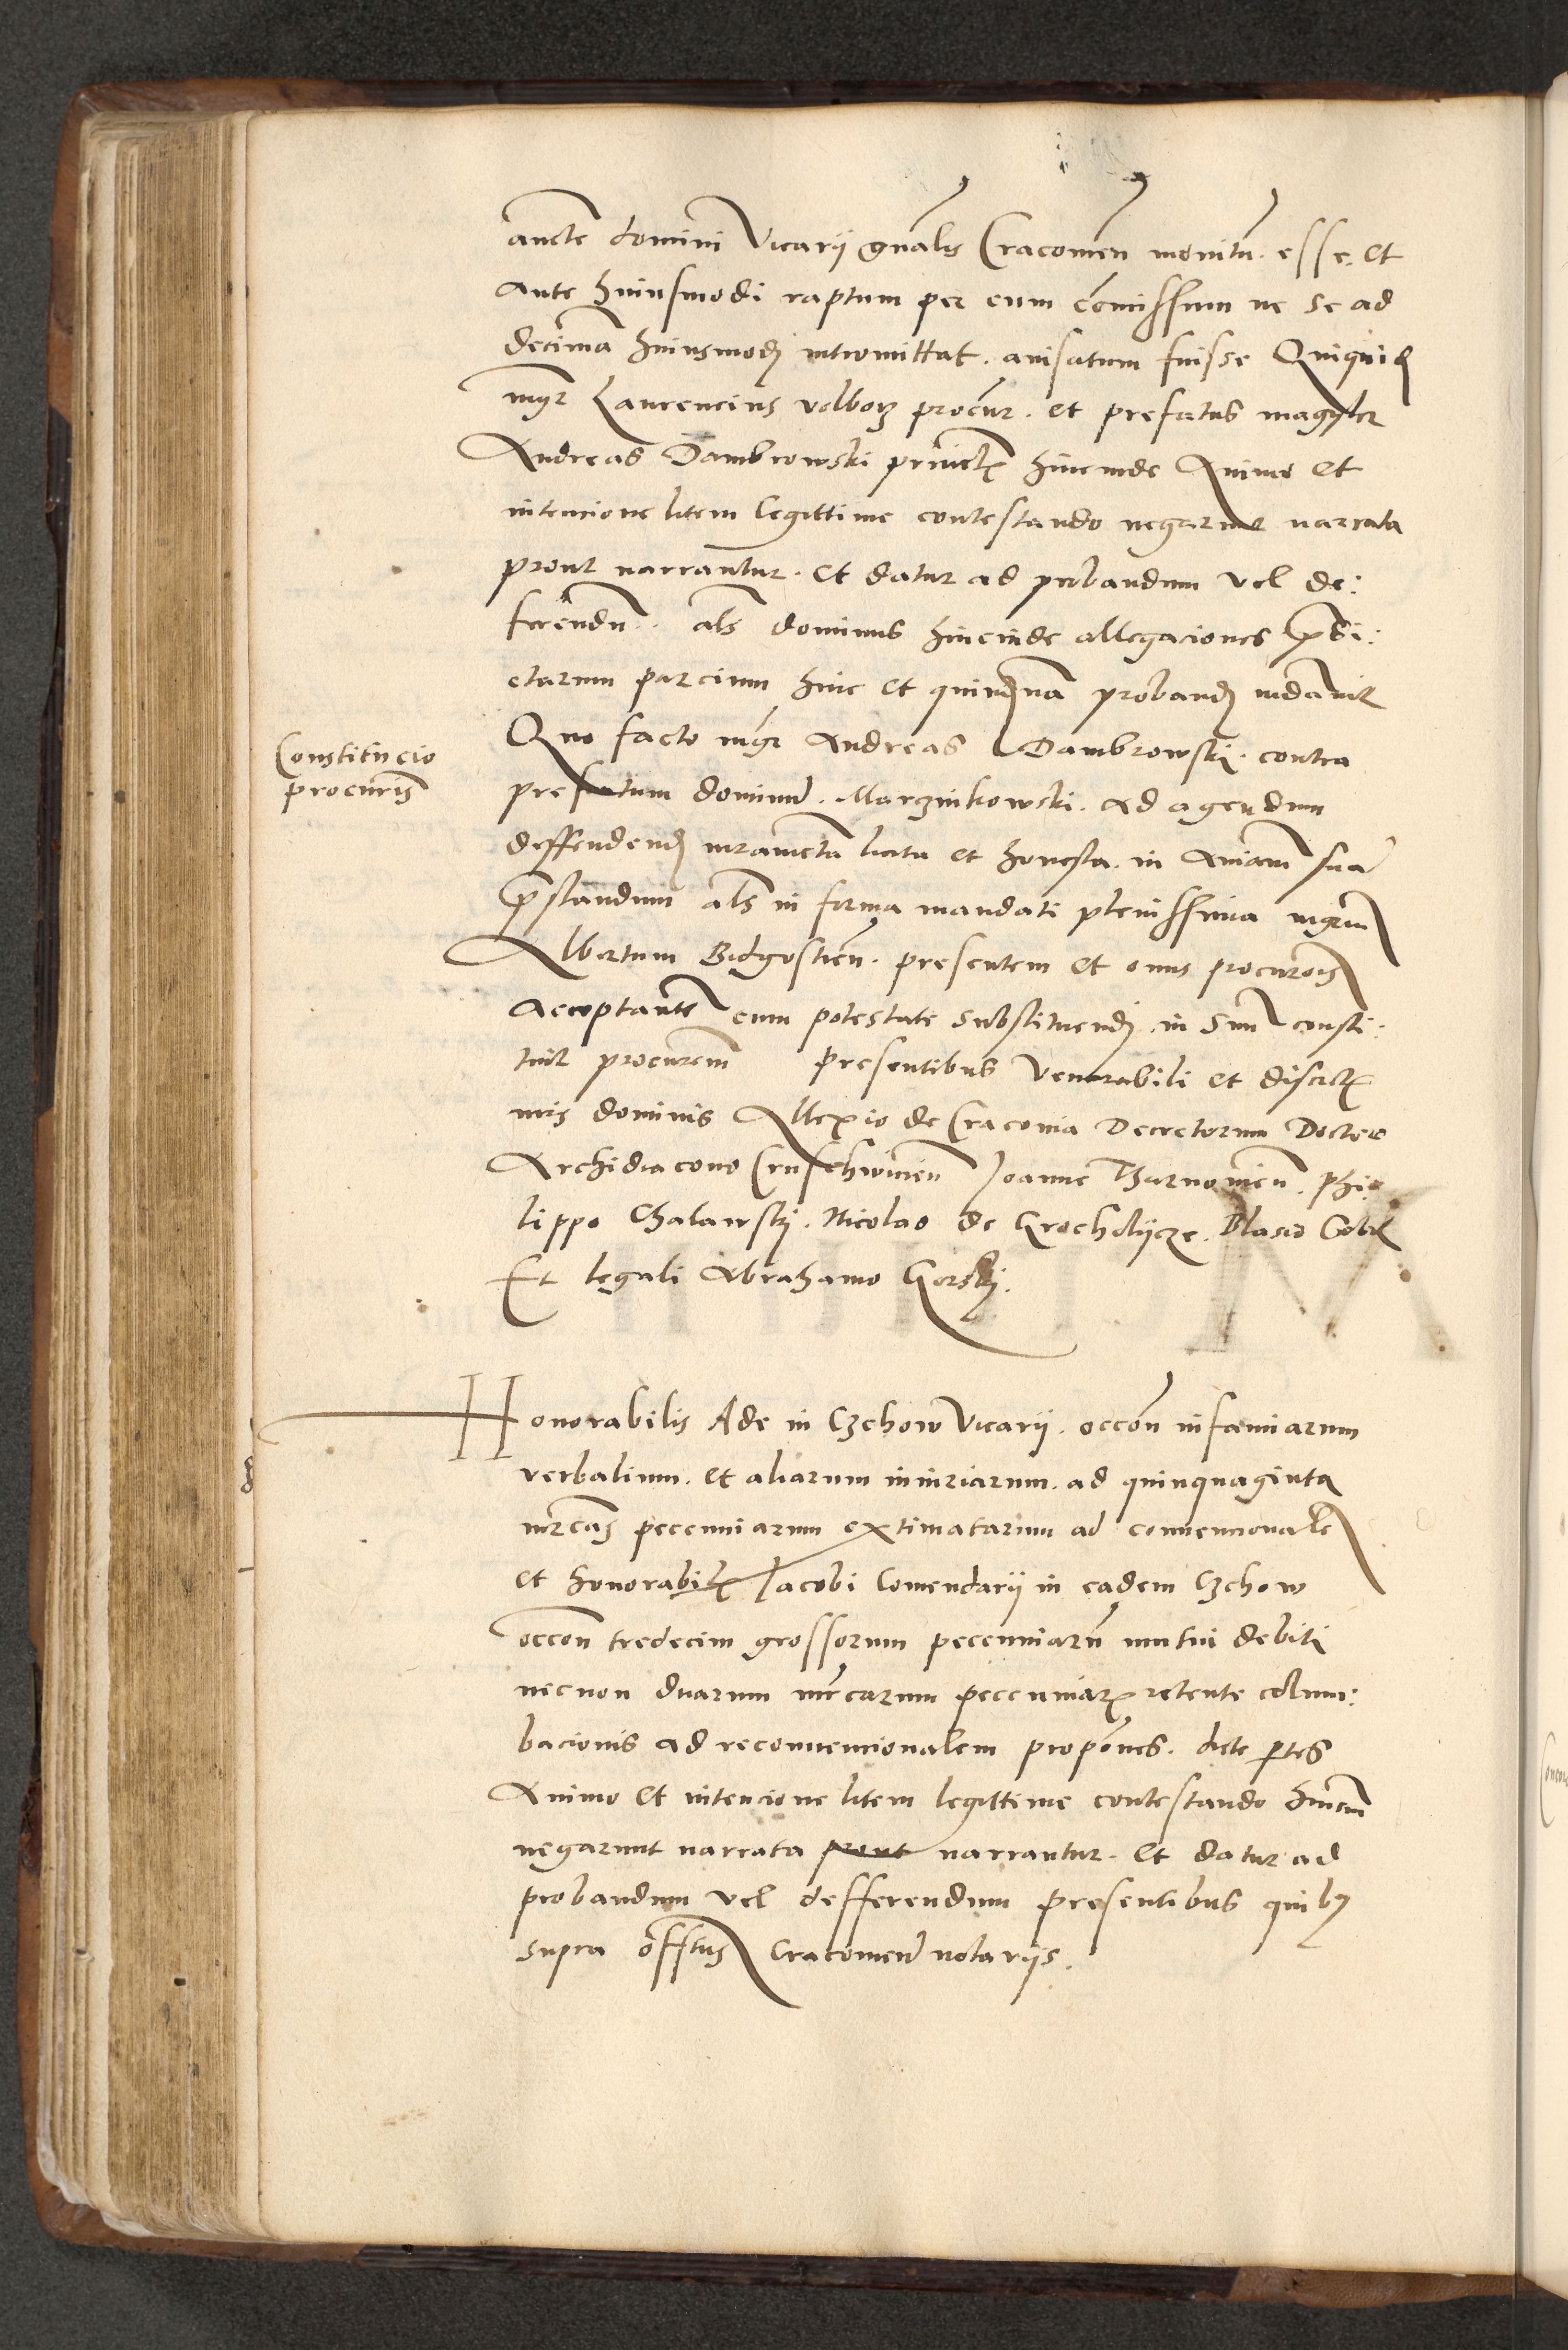 aucte domini Vicarij gnalis Cracouien monitu. esse. et
ante huiusmodi raptum per eum comissum ne se ad
decima huiusmodj intromittat. auisatum fuisse Quiquid
mgr Laurencius volborz procur. et prefatus magister
Andreas Dambrowski hincinde Animo et
intencione litem legittime contestando negarunt narrata
prout narrantur. et datur ad probandum vel de:
ferendu. als dominus hincinde allegaciones predi:
ctarum parcium hinc et quindena probandj mdauit
Quo facto mgr Andreas Dambrowski. contra
Constitucio
procuris
prefatum dominu. Marzinkowski. ad agendum
deffendendj iurameta licita et honesta. in Aniam sua
prestandum als in forma mandati plenissima mgrum
Albertum Bidgostien. presentem et onus procurois
Acceptante cum potestate substituendj. in Suu consti:
tuit procurem presentibus Venerabili et discret
mis dominis Allexio de Cracouia Decretorum Doctore
Archidiacono Cruschwicien Joanne Tharnouien. Phi:
lippo Chalawskj. Nicolao de Grocholijcze. Blasio
Et legali Abrahamo Gorskj.
Honorabilis Ade in Czchow Vicarij. occon infamiarum
verbalium. et aliarum iniuriarum. ad quinquaginta
mrcas pecuniarum extimatarum ad conuencionale
et honorabil Jacobi Comendarij in eadem Czchow
occon tredecim grossorum pecuniaru mutui debiti
necnon duarum mrcarum pecuniar retente colum:
bacionis ad reconuencionalem propones. dicte ptes
Animo et intencione litem legittime contestando hincin
negarunt narrata prout narrantur. et datur ad
probandum vel defferendum presentibus quib9
supra offtus Cracouien notarijs.